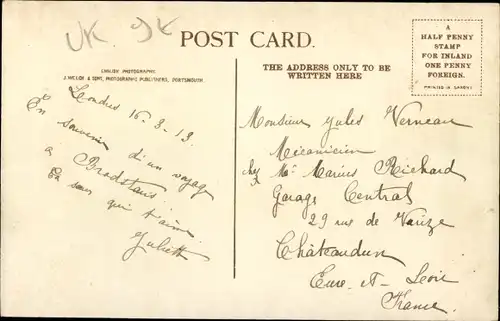 UK
POST CARD.
A
HALF PENNY
STAMP
FOR INLAND
ONE PENNY
FOREIGN.
PRINTED IN SAXONY
ENGLISH PHOTOGRAPHIC
PHOTOGRAPHIC PUBLISHERS, PORTSMOUTH.
THE ADDRESS ONLY TO BE
WRITTEN HERE
Londres 16-8-13
En souvenir
d'un voyage
a Bradstairs
Ta sœur qui t'aime
Juliette
Monsieur Jules Verneau
Mécanicien
chez Mr Marius Richard
Garage Central
29 rue de Varize
Châteaudun
Eure-et-Loir
France.